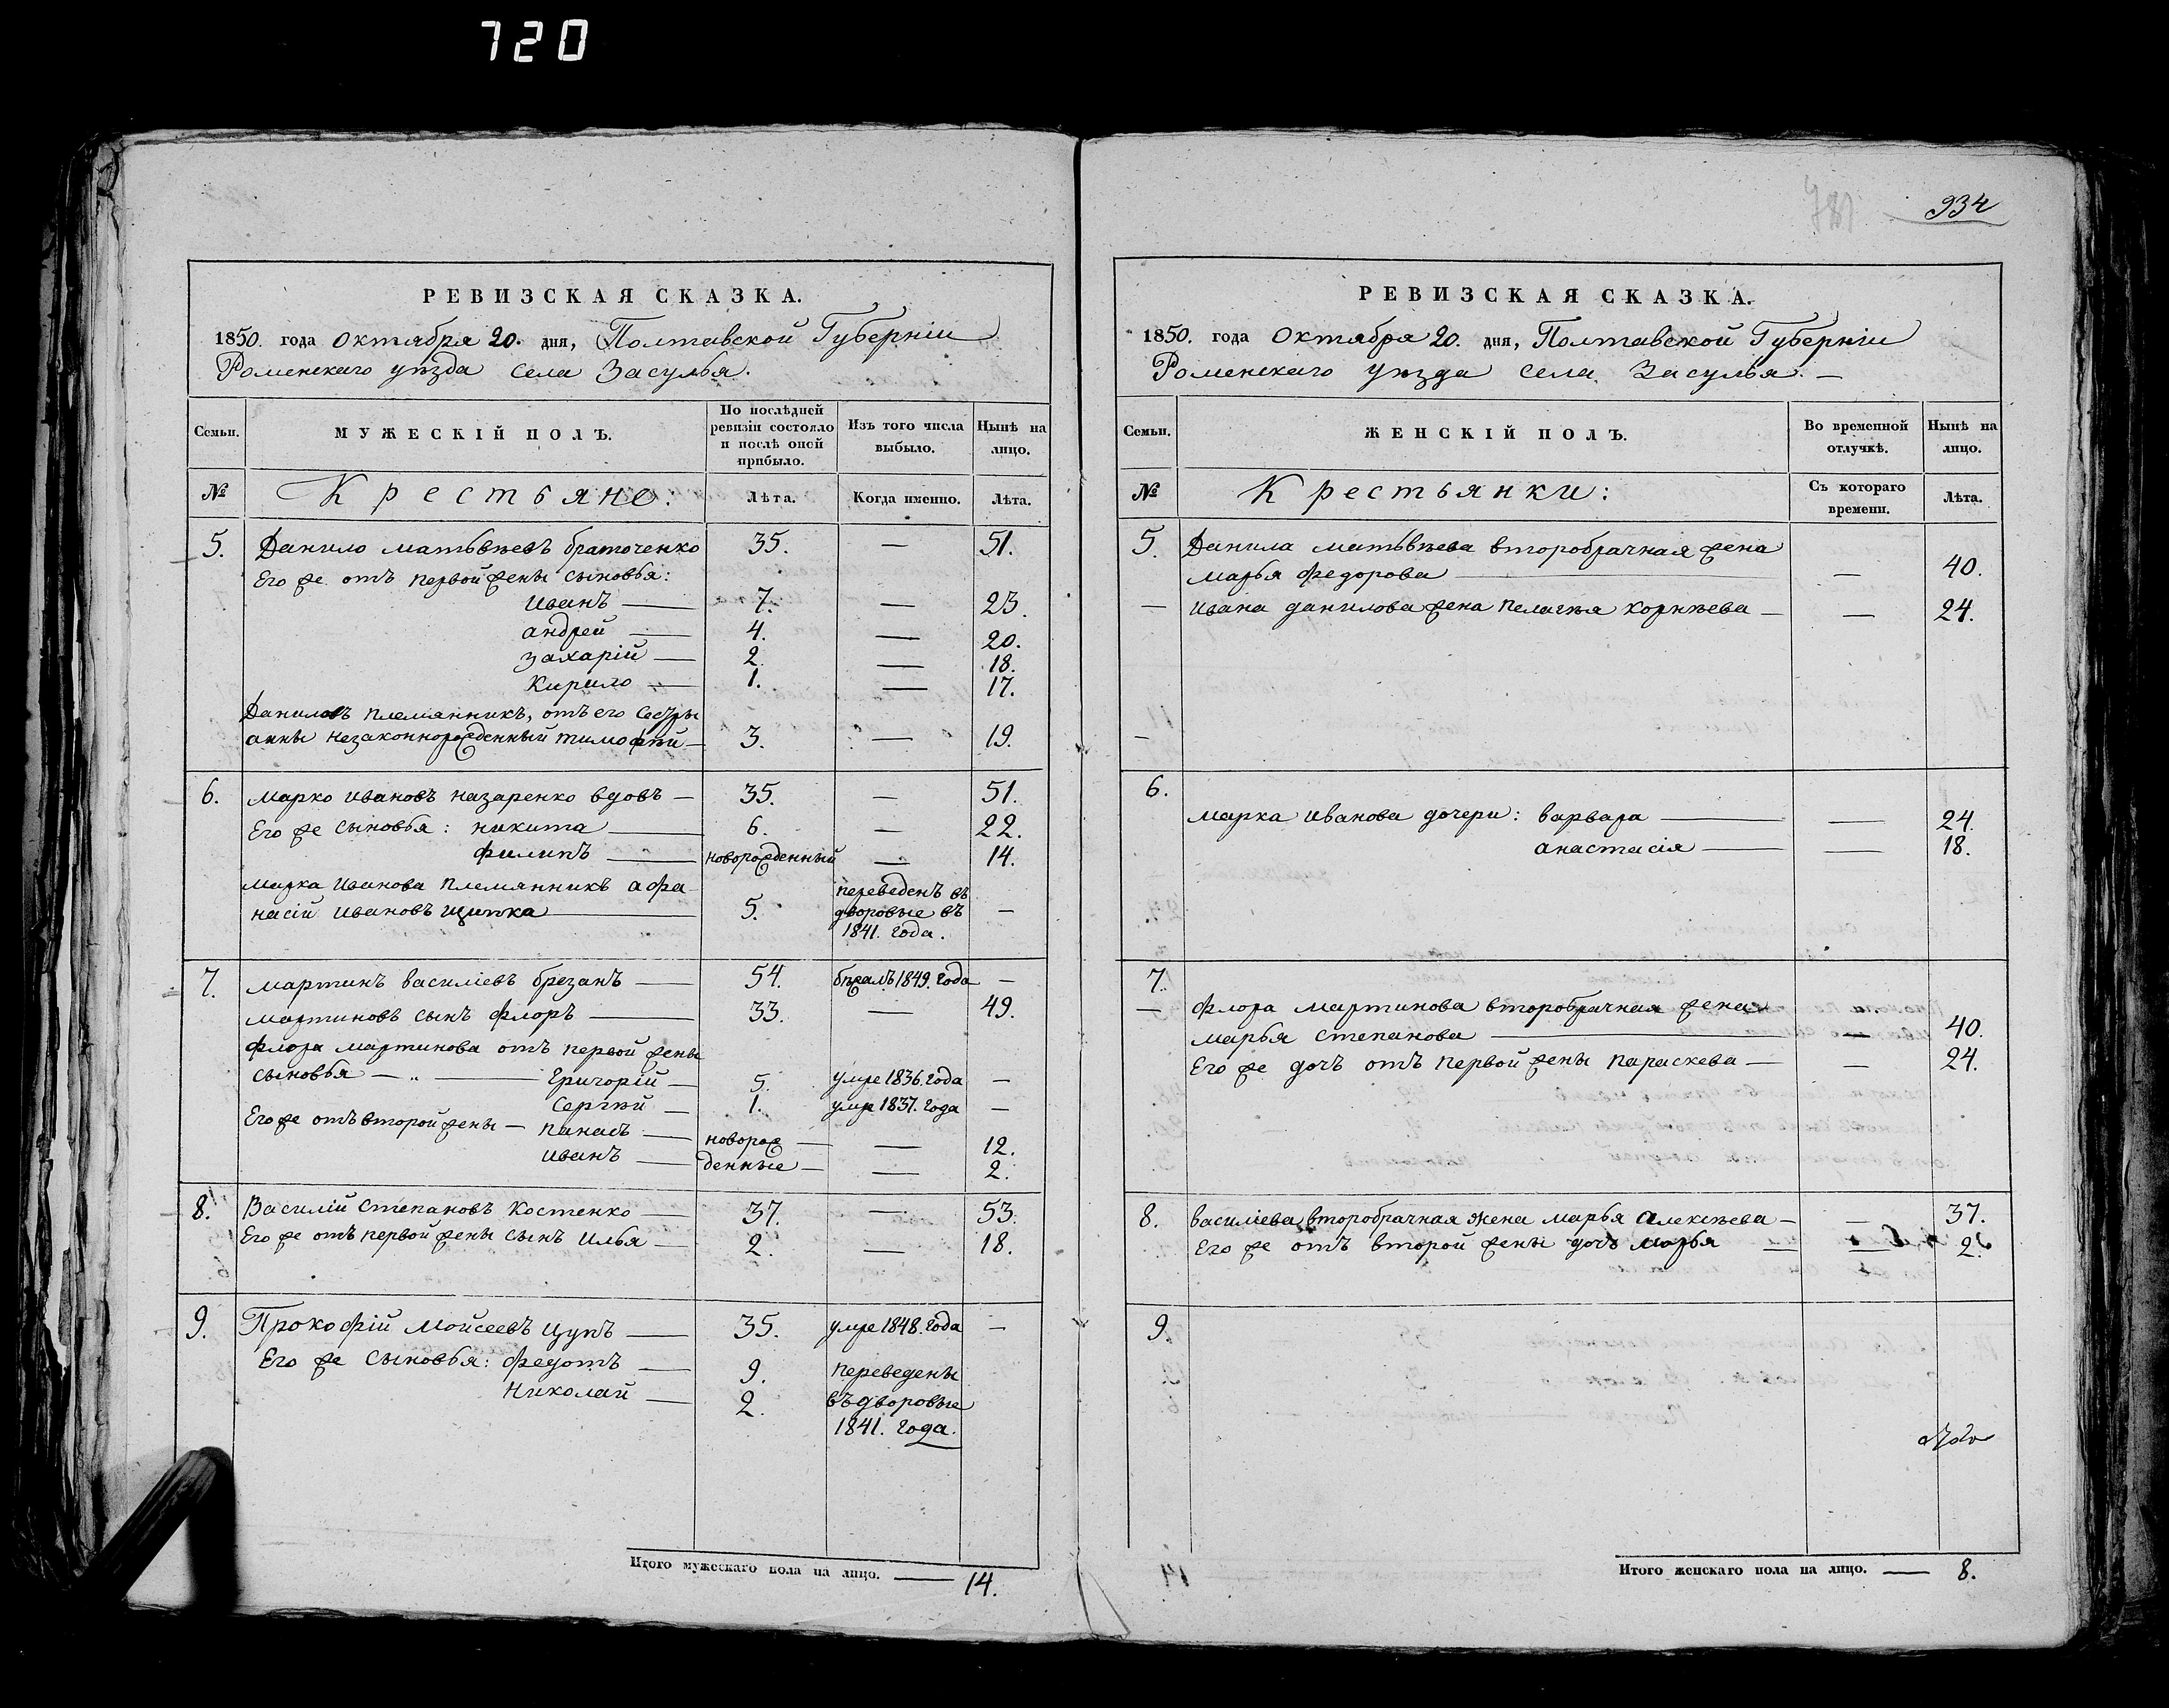 720
РЕВИЗСКАЯ СКАЗКА.
1850. года Октября 20. дня, Полтавской Губерніи
Роменскаго уѣзда села Засулья.
Семьи.
МУЖЕСКІЙ ПОЛЪ.
По послѣдней ревизіи состояло и послѣ оной прибыло.
Изъ того числа выбыло.
Нынѣ на лицо.
№ Крестьяне: Лѣта. Когда именно. Лѣта.
5. Данило Матьвѣевъ Браточенко 35. — 51.
Его же отъ первой жены сыновья:
Иванъ — 7. — 23.
Андрей — 4. — 20.
Захарій — 2. — 18.
Кирило — 1. — 17.
Даниловъ племянникъ, отъ его сестры
Анны незаконнорожденный Тимофѣй — 3. — 19.
6. Марко Ивановъ Назаренко вдовъ — 35. — 51.
Его же сыновья: Никита — 6. — 22.
Филипъ — новорожденный — 14.
Марка Иванова племянникъ Афа-
насій Ивановъ Щипка — 5. переведенъ въ дворовые въ 1841. года. —
7. Мартинъ Василіевъ Брезанъ — 54. бѣжалъ 1849. года —
Мартиновъ сынъ Флоръ — 33. — 49.
Флора Мартинова отъ первой жены
сыновья — „ — Григорій — 5. умре 1836. года —
Сергѣй — 1. умре 1837. года —
Его же отъ второй жены — Панасъ — новорож — — 12.
Иванъ — денные — — 2.
8. Василій Степановъ Костенко — 37. — 53.
Его же отъ первой жены сынъ Илья — 2. — 18.
9. Прокофій Мойсеевъ Цупъ — 35. умре 1848. года —
Его же сыновья: Федотъ — 9. переведены
Николай — 2. въ дворовые
1841. года.
Итого мужескаго пола на лицо. — 14.
934
РЕВИЗСКАЯ СКАЗКА.
1850. года Октября 20. дня, Полтавской Губерніи
Роменскаго уѣзда села Засулья. —
Семьи.
ЖЕНСКІЙ ПОЛЪ.
Во временной отлучкѣ.
Нынѣ на лицо.
№ Крестьянки: Съ котораго времени. Лѣта.
5. Данила Матьвѣева второбрачная жена
Марья Федорова — — 40.
— Ивана Данилова жена Пелагѣя Корнѣева — — 24.
6.
Марка Иванова дочери: Варвара — — 24.
Анастасія — — 18.
7.
— Флора Мартинова второбрачная жена
Марья Степанова — — 40.
Его же дочъ отъ первой жены Параскева — — 24.
8. Василіева второбрачная жена Марья Алексѣева — — 37.
Его же отъ второй жены дочъ Марья — — 2.
9.
Итого женскаго пола на лицо. — 8.